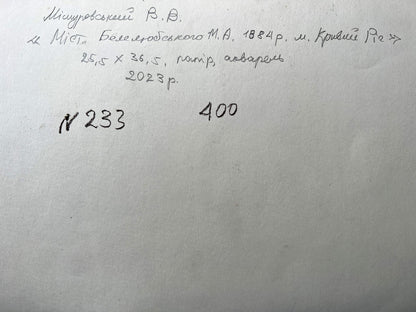 Мішуровський В.В.
« Міст Белелюбського М.А. 1884р. м. Кривий Ріг »
25,5 x 36,5, папір, акварель
2023р.
N 233 400